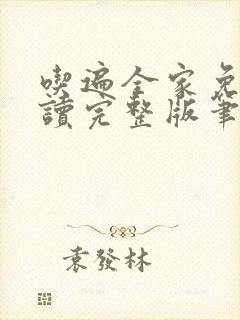 喫遍全家免
讀完整版筆
袁發林